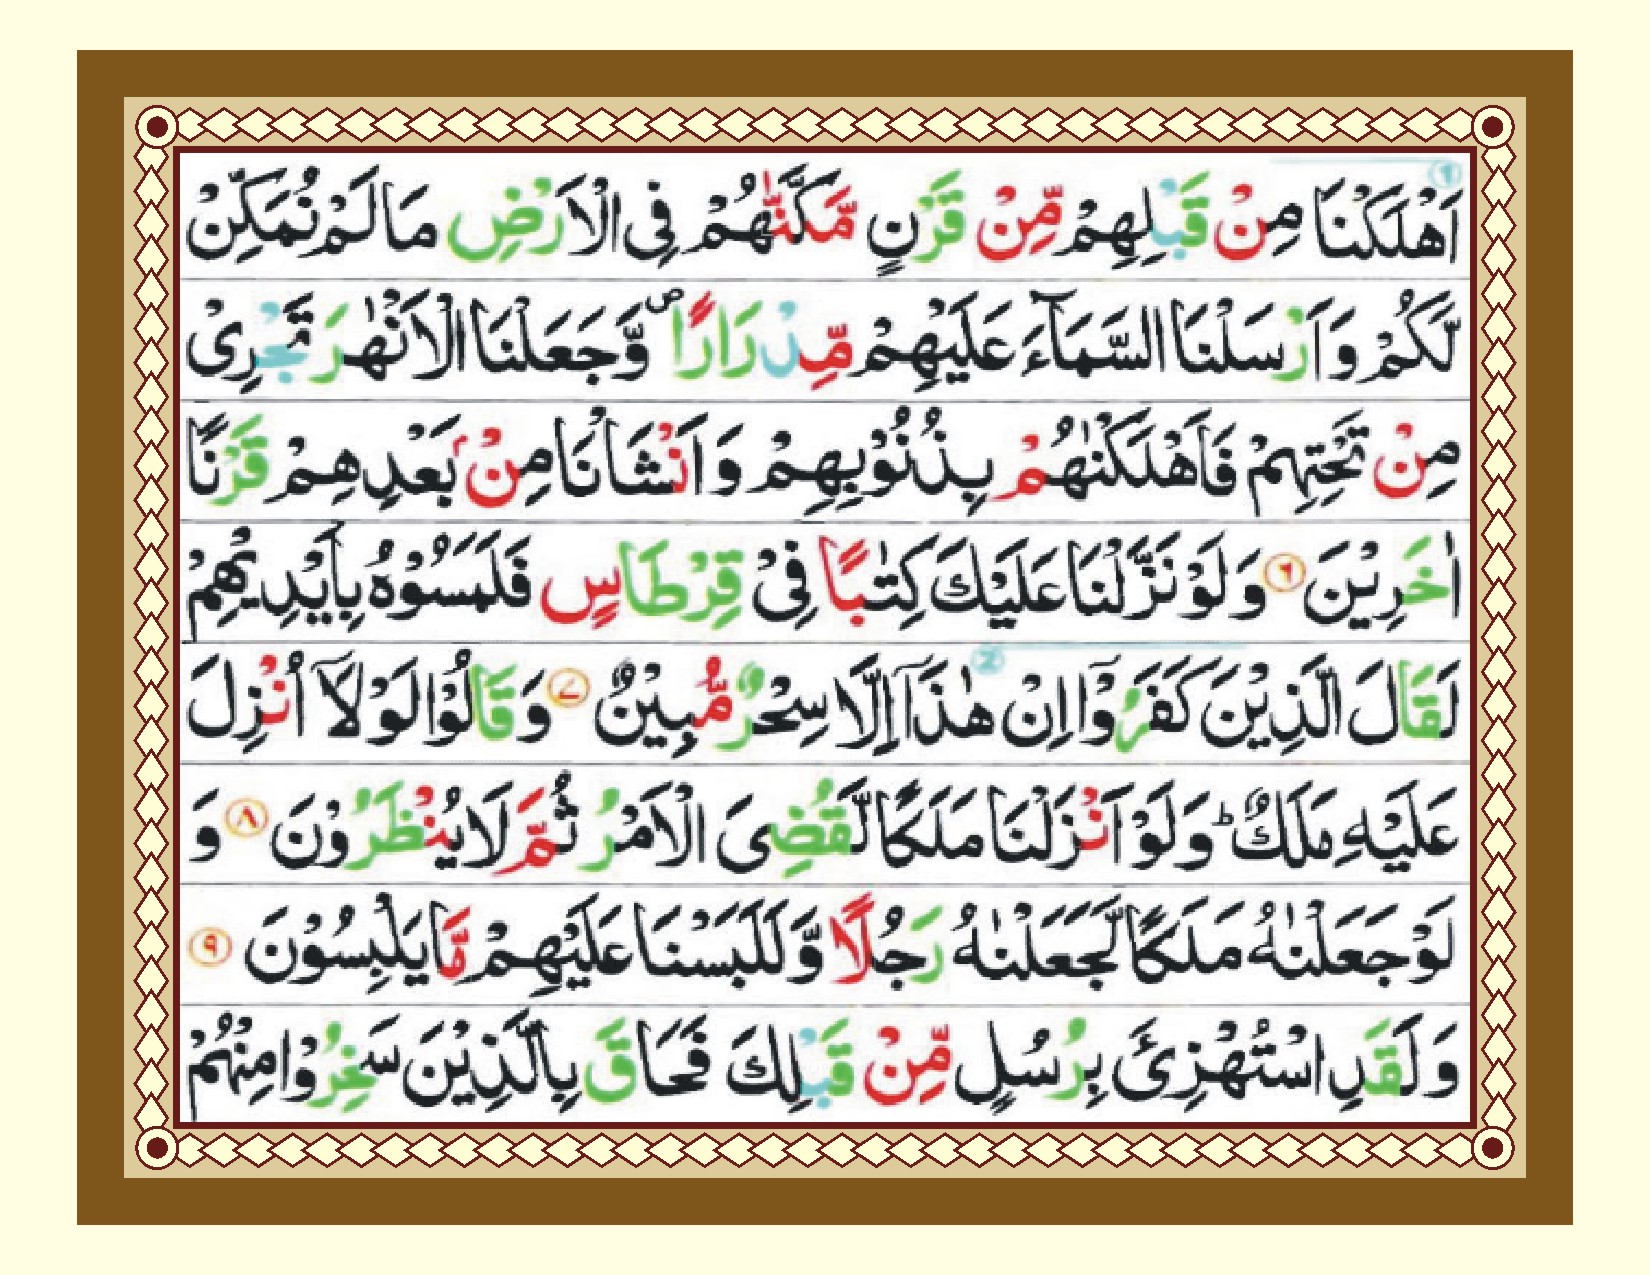 اَهْلَكْنَا مِنْ قَبْلِهِمْ مِّنْ قَرْنٍ مَّكَّنّٰهُمْ فِی الْاَرْضِ مَا لَمْ نُمَكِّنْ
لَّكُمْ وَ اَرْسَلْنَا السَّمَآءَ عَلَیْهِمْ مِّدْرَارًا ۪ وَّ جَعَلْنَا الْاَنْهٰرَ تَجْرِیْ
مِنْ تَحْتِهِمْ فَاَهْلَكْنٰهُمْ بِذُنُوْبِهِمْ وَ اَنْشَاْنَا مِنْۢ بَعْدِهِمْ قَرْنًا
اٰخَرِیْنَ ﴿۶﴾ وَ لَوْ نَزَّلْنَا عَلَیْكَ كِتٰبًا فِیْ قِرْطَاسٍ فَلَمَسُوْهُ بِاَیْدِیْهِمْ
لَقَالَ الَّذِیْنَ كَفَرُوْۤا اِنْ هٰذَاۤ اِلَّا سِحْرٌ مُّبِیْنٌ ﴿۷﴾ وَ قَالُوْا لَوْ لَاۤ اُنْزِلَ
عَلَیْهِ مَلَكٌ ؕ وَ لَوْ اَنْزَلْنَا مَلَكًا لَّقُضِیَ الْاَمْرُ ثُمَّ لَا یُنْظَرُوْنَ ﴿۸﴾ وَ
لَوْ جَعَلْنٰهُ مَلَكًا لَّجَعَلْنٰهُ رَجُلًا وَّ لَلَبَسْنَا عَلَیْهِمْ مَّا یَلْبِسُوْنَ ﴿۹﴾
وَ لَقَدِ اسْتُهْزِئَ بِرُسُلٍ مِّنْ قَبْلِكَ فَحَاقَ بِالَّذِیْنَ سَخِرُوْا مِنْهُمْ